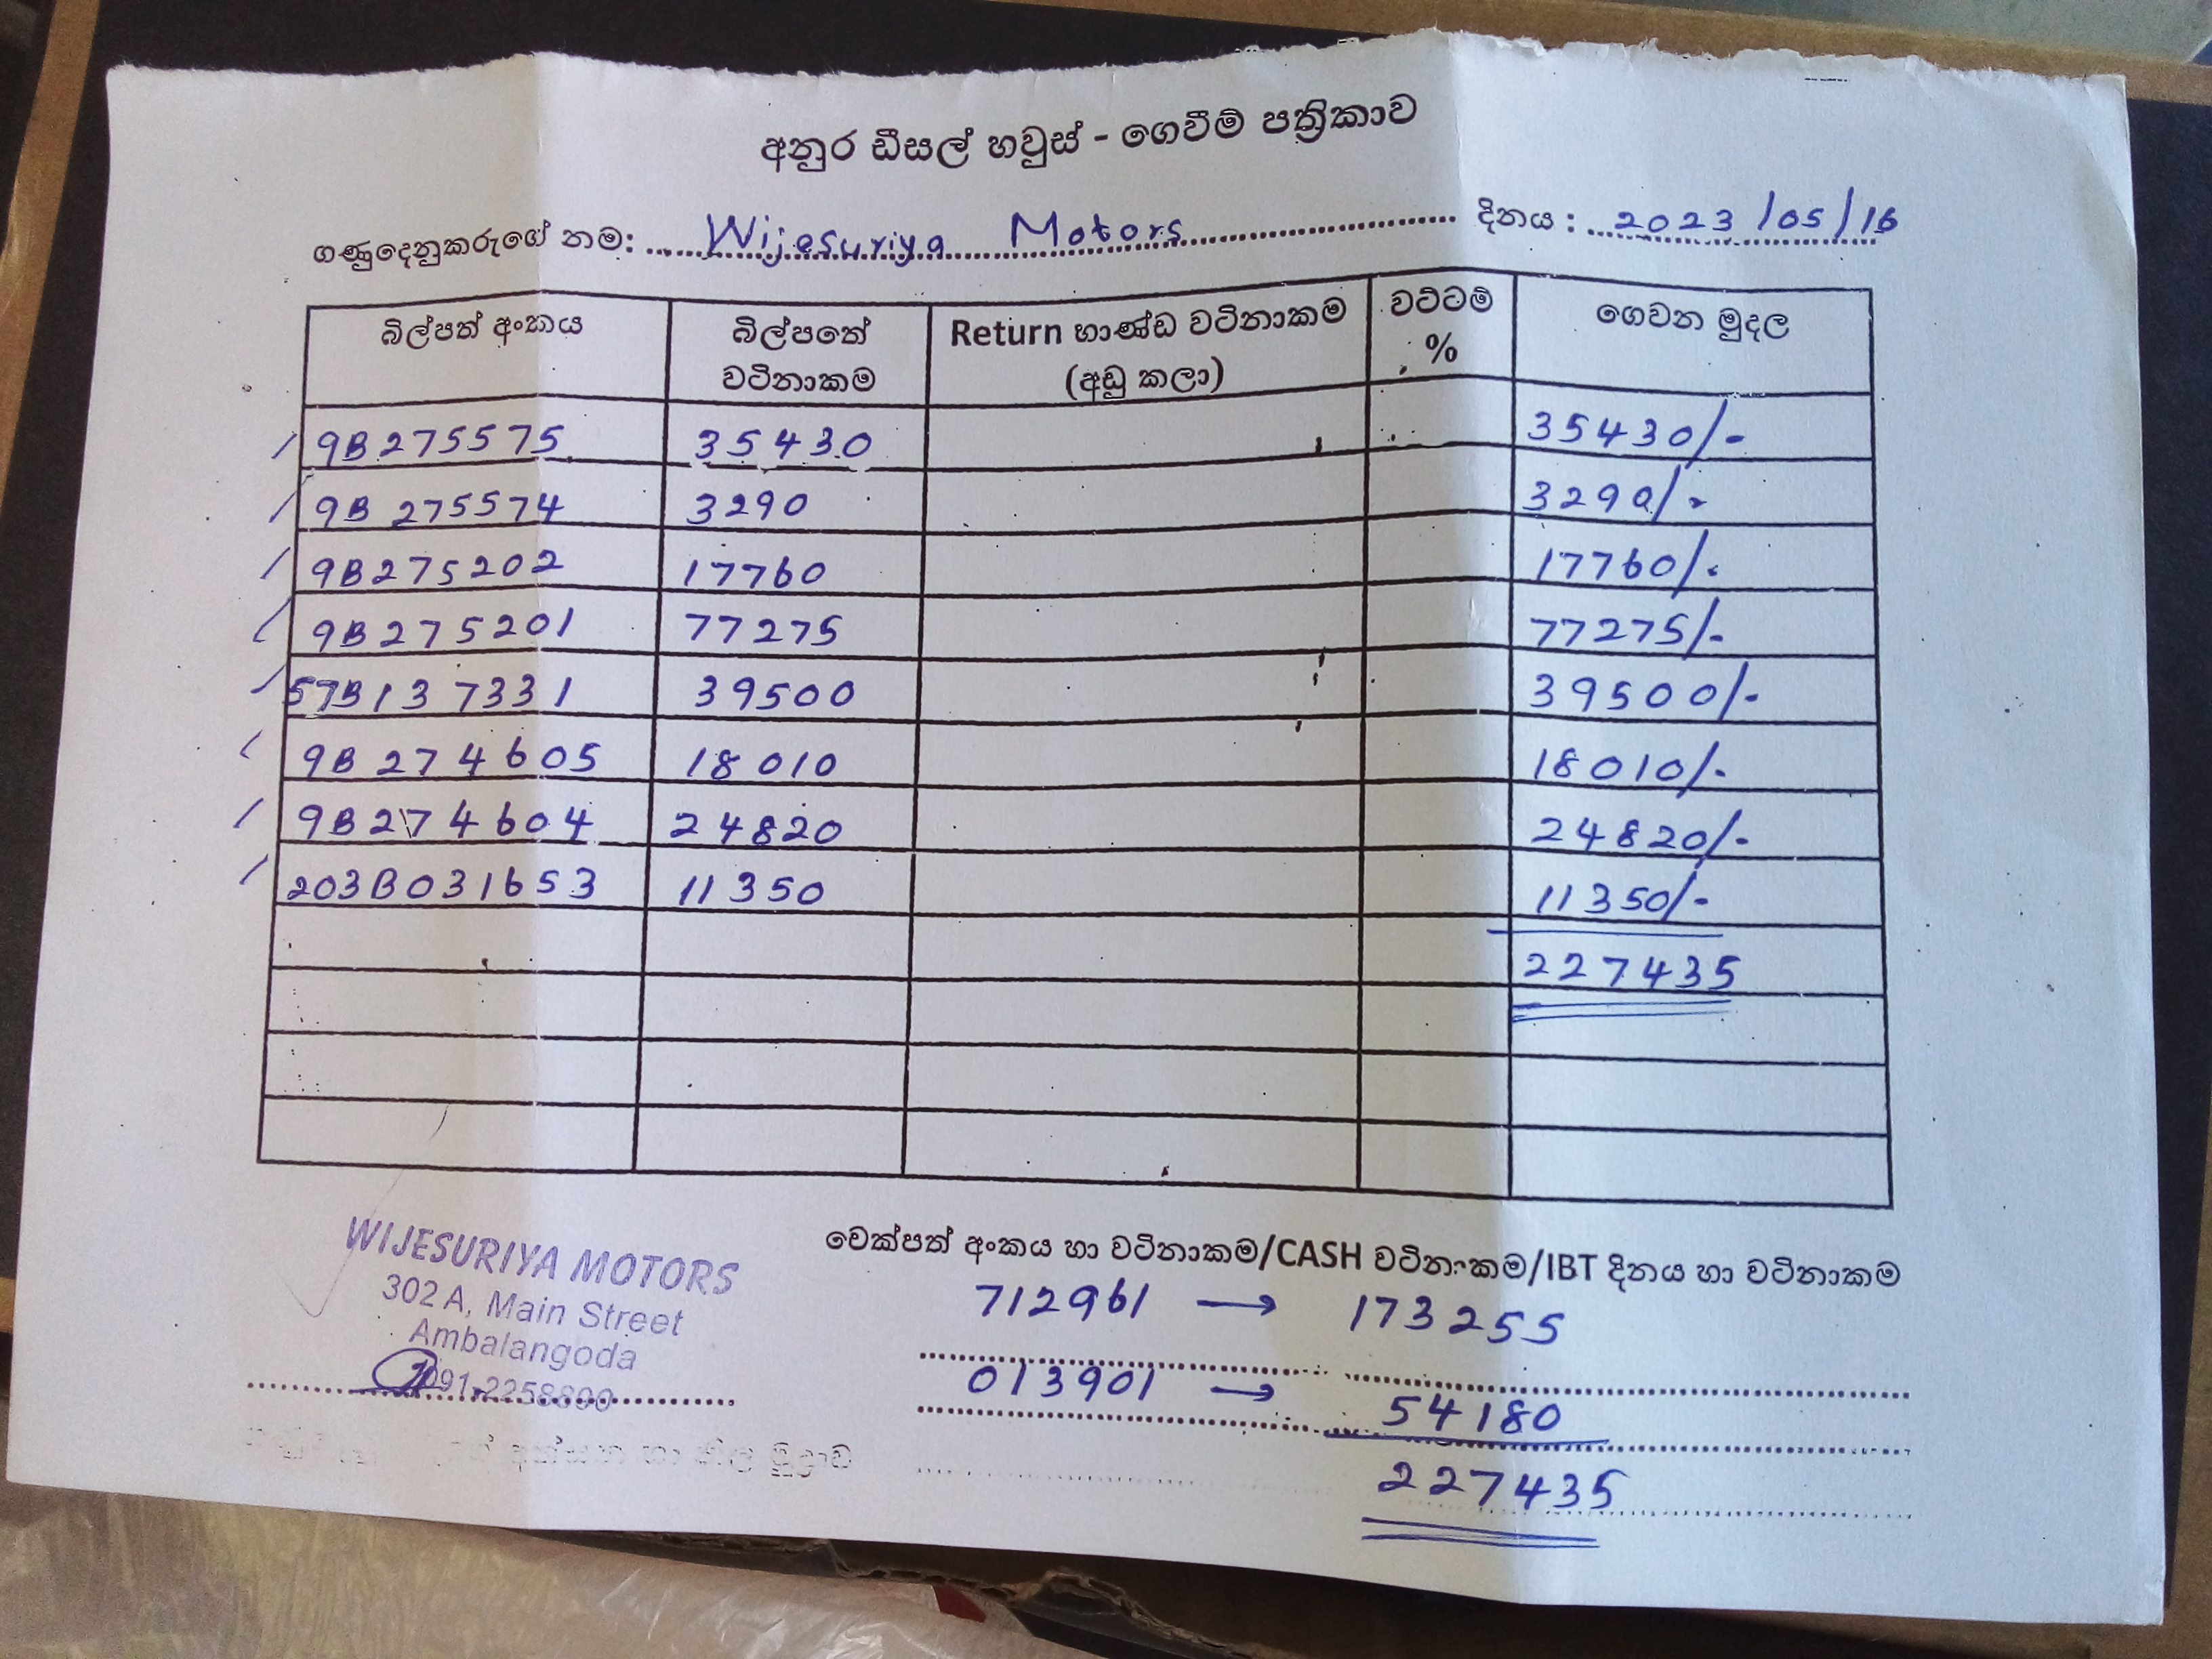 අනුර ඩීසල් හවුස් - ගෙවීම් පත්‍රිකාව
ගණුදෙනුකරුගේ නම: Wijesuriya Motors දිනය : 2023/05/16
බිල්පත් අංකය බිල්පතේ වටිනාකම Return භාණ්ඩ වටිනාකම (අඩු කලා) වට්ටම් % ගෙවන මුදල
9B275575 35430 35430/-
9B 275574 3290 3290/-
9B275202 17760 17760/-
9B275201 77275 77275/-
57B137331 39500 39500/-
9B 274605 18010 18010/-
9B274604 24820 24820/-
203B031653 11350 11350/-
227435
චෙක්පත් අංකය හා වටිනාකම/CASH වටිනාකම/IBT දිනය හා වටිනාකම
712961 → 173255
013901 → 54180
227435
WIJESURIYA MOTORS
302 A, Main Street
Ambalangoda
091-2258800
අත්සන හා නිල මුද්‍රාව